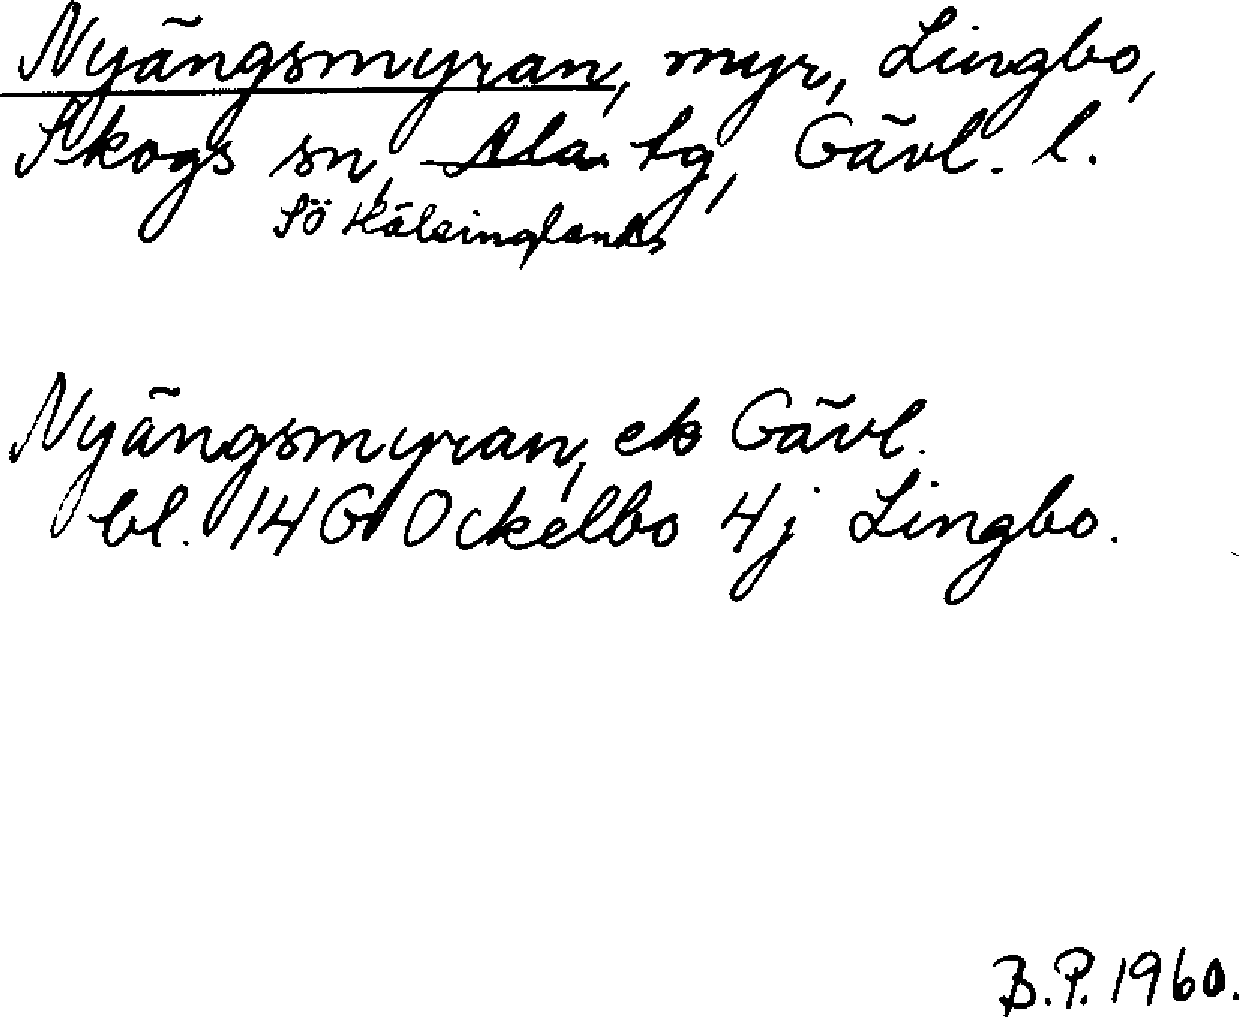 Nyängsmyran, myr, Lingbo,
Skogs sn, Ala tg, Gävl. l.
Sö Hälsinglands
Nyängsmyran, ek Gävl.
bl. 14 G Ockelbo 4j Lingbo.
B.P. 1960.